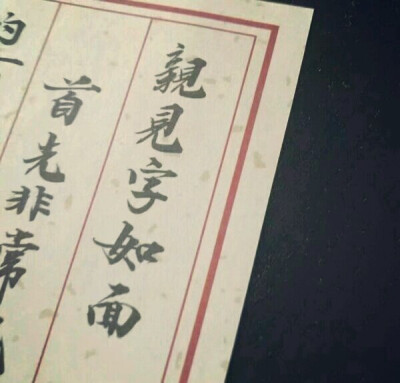 親見字如面
首先非常
的一